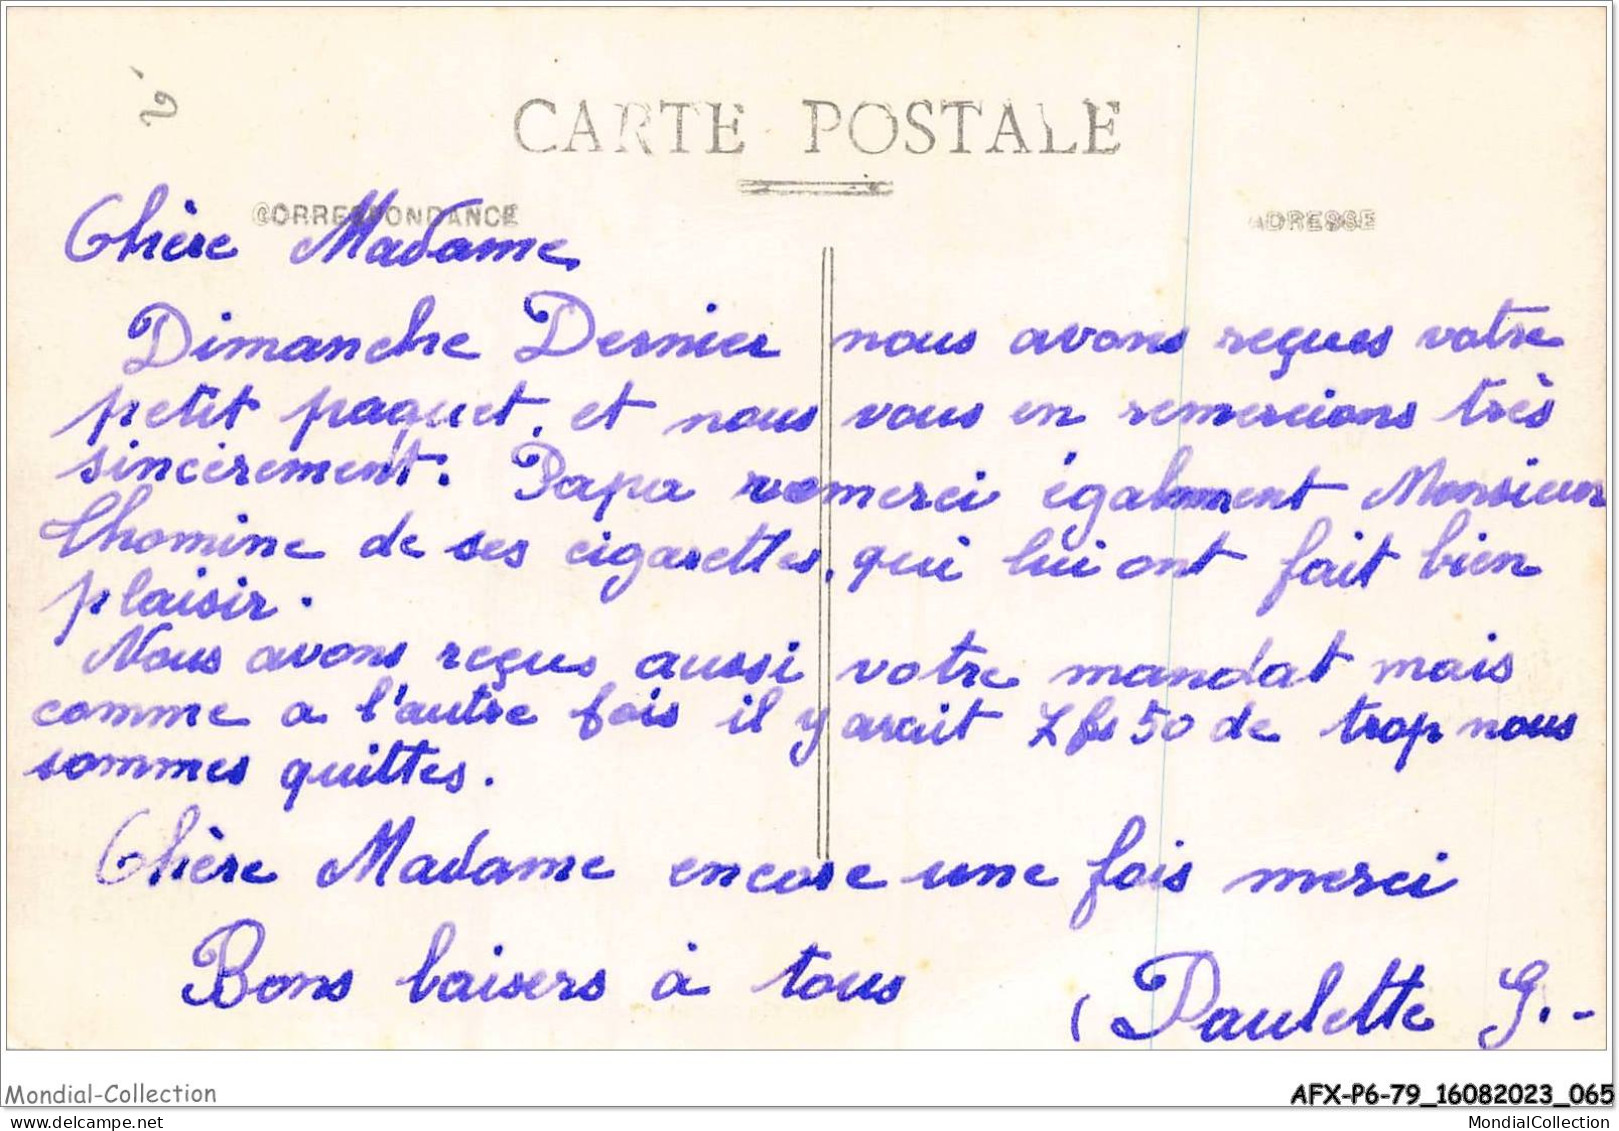 CARTE POSTALE
CORRESPONDANCE
ADRESSE
Chère Madame
Dimanche Dernier nous avons reçues votre
petit paquet, et nous vous en remercions très
sincèrement. Papa remerci également Monsieur
Lhomine de ses cigarettes, qui lui ont fait bien
plaisir.
Nous avons reçus aussi votre mandat mais
comme a l'autre fois il y avait 7 frs 50 de trop nous
sommes quittes.
Chère Madame encore une fois merci
Bons baisers à tous
(Paulette G.-
Mondial-Collection
AFX-P6-79_16082023_065
MondialCollection.net
MondialCollection